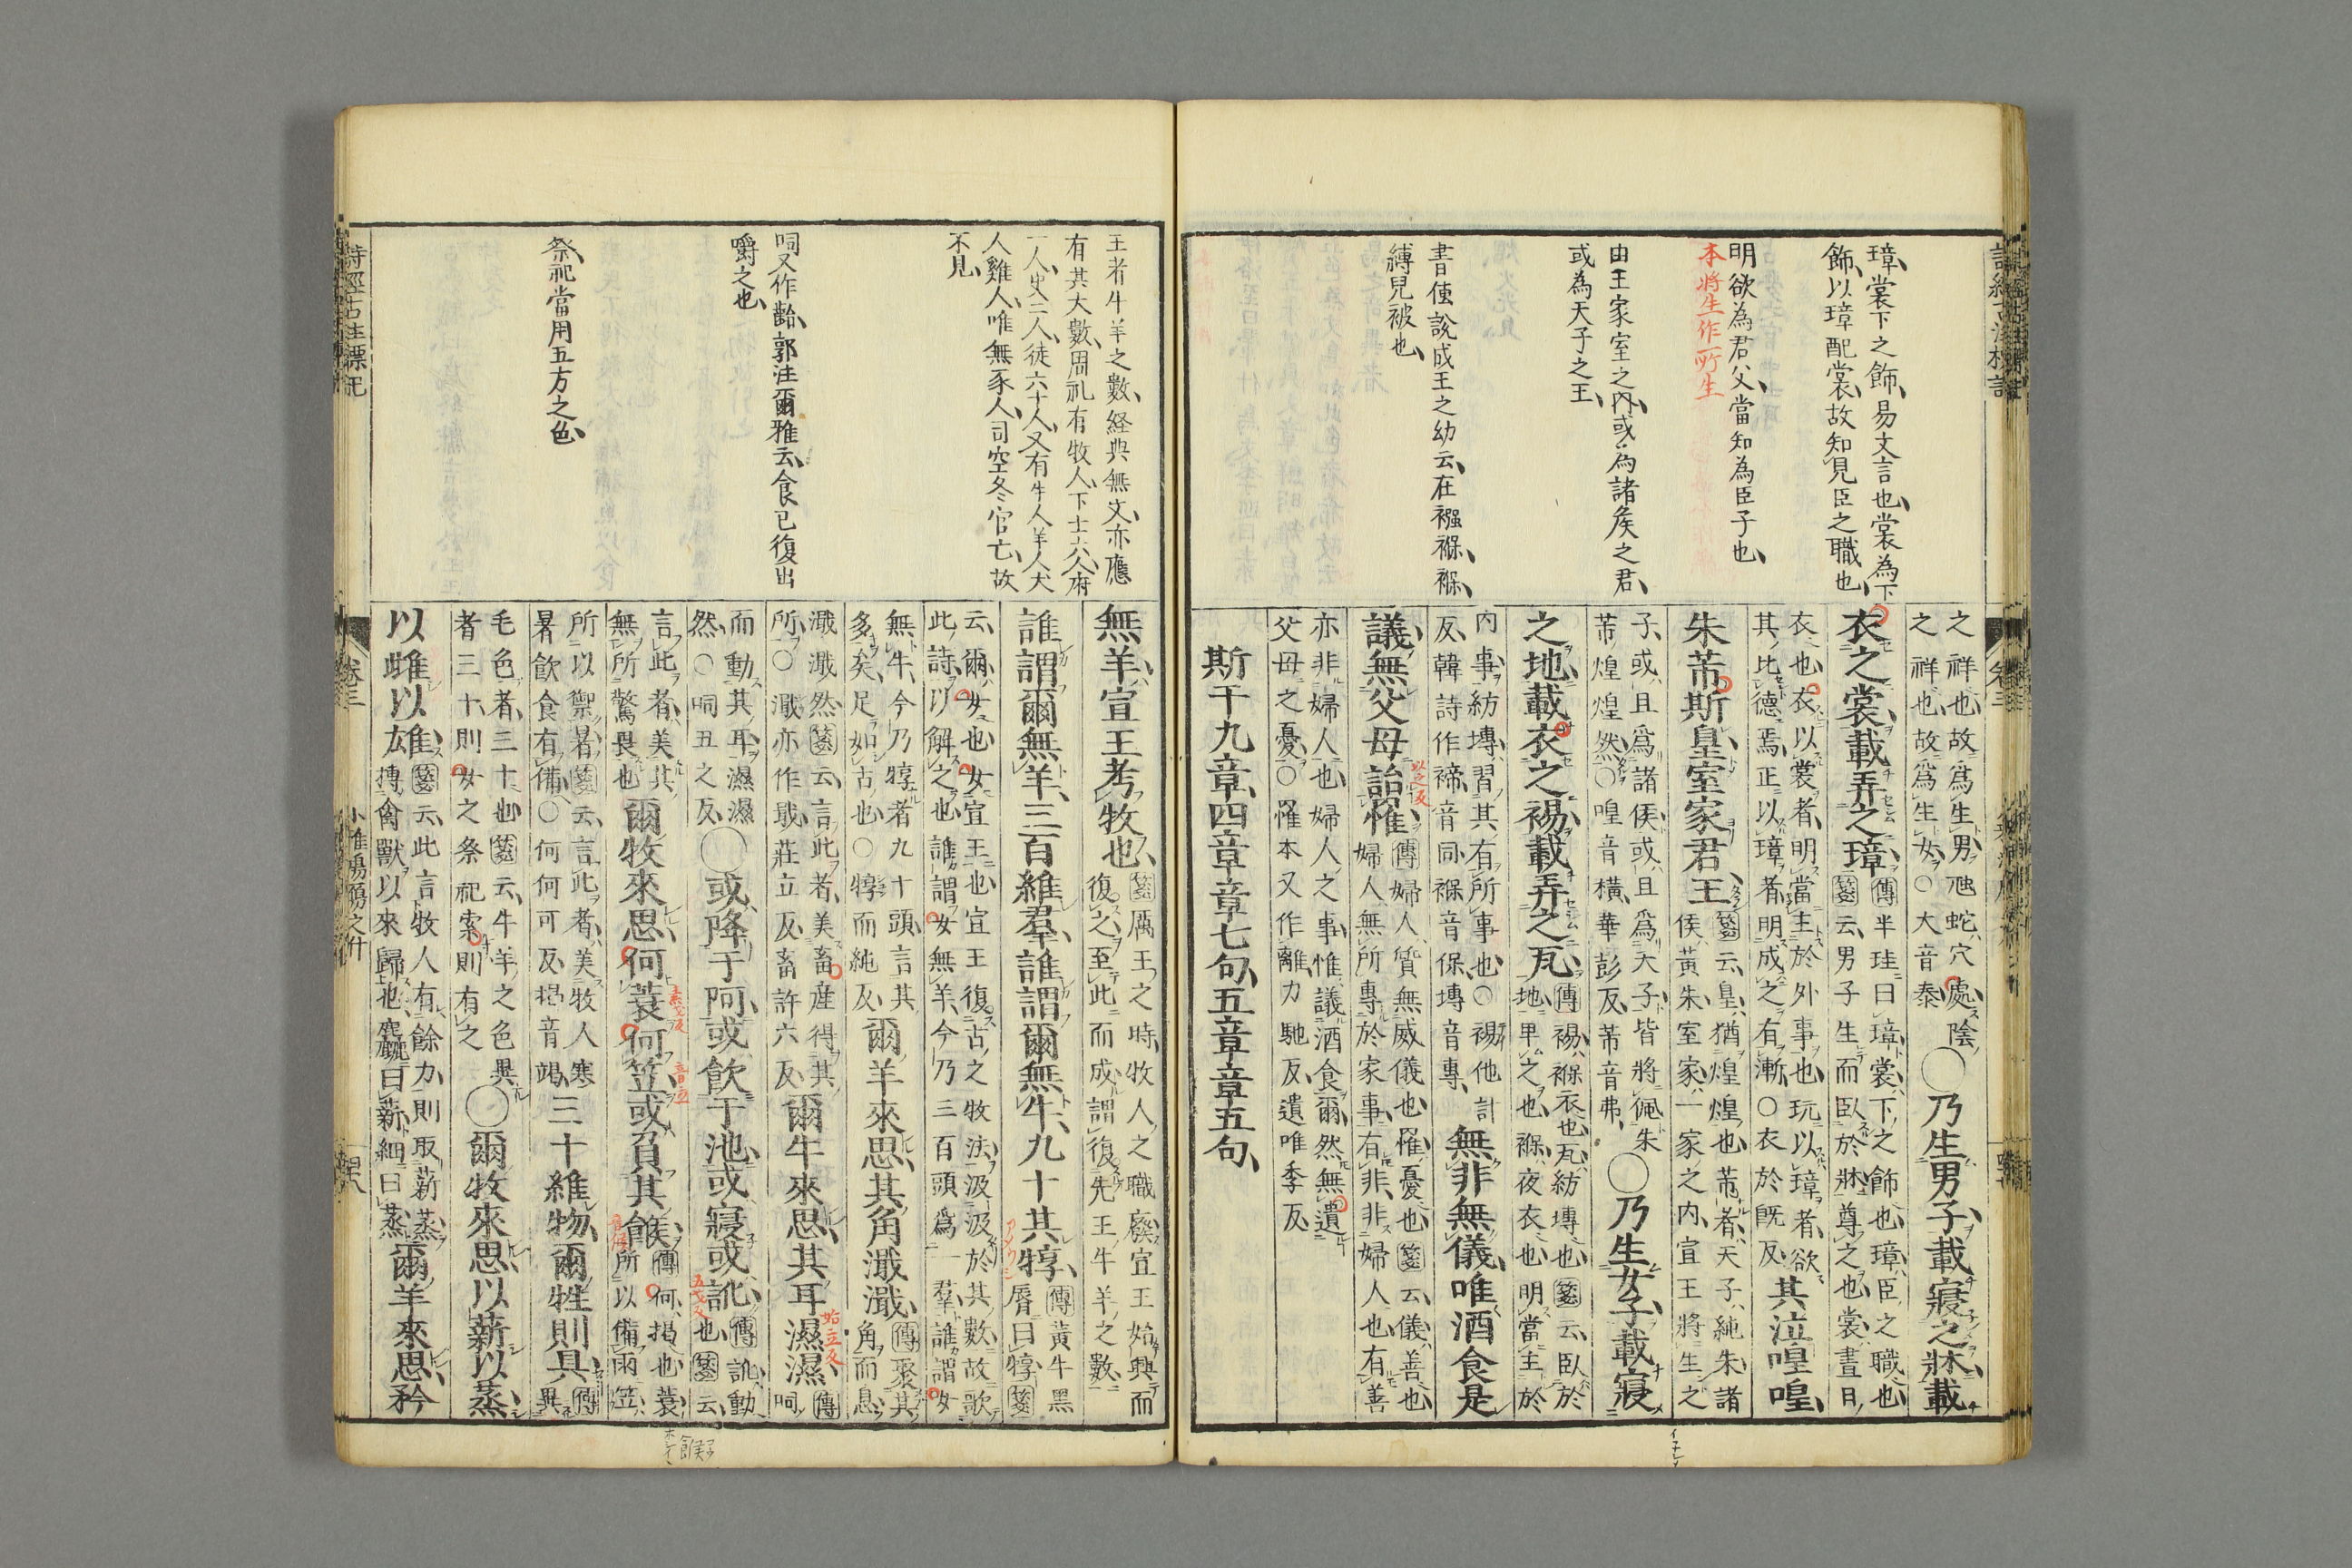 璋、裳下之飾、易文言也、裳為下
飾、以璋配裳、故知見臣之職也、
明欲為君父、當知為臣子也、
本將生作所生
由王家室之內、或為諸矦之君、
或為天子之王、
書傳說成王之幼云、在襁褓、褓、
縛兒被也、
之祥也、故爲生男、虺蛇穴處、陰
之祥也、故爲生女、○大音泰
○乃生男子、載寢之牀、載
衣之裳、載弄之璋、
傳半珪曰璋、裳、下之飾也、璋、臣之職也、
箋云、男子生而臥於牀、尊之也、裳、晝日
衣也、衣以裳者、明當主於外事也、玩以璋者、欲
其比德焉、正以璋者、明成之有漸、○衣於旣反
其泣喤喤、
朱芾斯皇、室家君王、
箋云、皇猶煌煌也、芾者、天子純朱、諸
侯黃朱、室家、一家之內、宣王將生之
子、或且爲諸侯、或且爲天子、皆將佩朱
芾煌煌然、○喤音橫、華彭反、芾音弗、
○乃生女子、載寢
之地、載衣之裼、載弄之瓦、
傳裼、褓衣也、瓦、紡塼也、箋云、臥於
地、卑之也、褓、夜衣也、明當主於
內事、紡塼、習其有所事也、○裼他計
反、韓詩作褅、音同、褓音保、塼音專、
無非無儀、唯酒食是
議、無父母詒罹、
以之反
傳婦人質無威儀也、罹、憂也、箋云、儀、善也、
婦人無所專於家事、有非、非婦人也、有善
亦非婦人也、婦人之事、惟議酒食爾、然無遺
父母之憂、○罹本又作離、力馳反、遺唯季反、
斯干九章、四章章七句、五章章五句、
王者牛羊之數、経典無文、亦應
有其大數、周礼有牧人、下士六人、府
一人、史二人、徒六十人、又有牛人羊人犬
人雞人、唯無豕人、司空冬官亡、故
不見、
呞又作齝、郭注爾雅云、食已復出
嚼之也、
祭祀當用五方之色、
無羊、宣王考牧也、
箋厲王之時、牧人之職廢、宣王始興而
復之、至此而成、謂復先王牛羊之數、
誰謂爾無羊、三百維羣、誰謂爾無牛、九十其犉、
傳黃牛黑
脣曰犉、箋
云、爾、女也、女宣王也、宣王復古之牧法、汲汲於其數、故歌
此詩以解之也、誰謂女無羊、今乃三百頭爲一羣、誰謂女
無牛、今乃犉者九十頭、言其
多矣、足如古也、○犉而純反、
爾羊來思、其角濈濈、
傳聚其
角而息
濈濈然、箋云、言此者、美畜産得其
所、○濈亦作戢、莊立反、畜許六反、
爾牛來思、其耳濕濕、
始立反
傳
呞
而動其耳、濕濕
然、○呞丑之反、
○或降于阿、或飲于池、或寢或訛、
五戈反
傳訛、動
也、箋云、
言此者、美其
無所驚畏也、
爾牧來思、何蓑何笠、或負其餱、
素戈反
音立
音侯
傳何、揭也、蓑
所以備雨、笠
所以禦暑、箋云、言此者、美牧人寒
暑飲食有備、○何何可反、揭音竭、
三十維物、爾牲則具、
傳
異
毛色者、三十也、箋云、牛羊之色異
者三十、則女之祭祀、索則有之、
○爾牧來思、以薪以蒸、
以雌以雄、
箋云、此言牧人有餘力、則取薪蒸、
搏禽獸以來歸也、麤曰薪、細曰蒸、
爾羊來思、矜
詩經古注標記
卷三
小雅鴻鴈之什